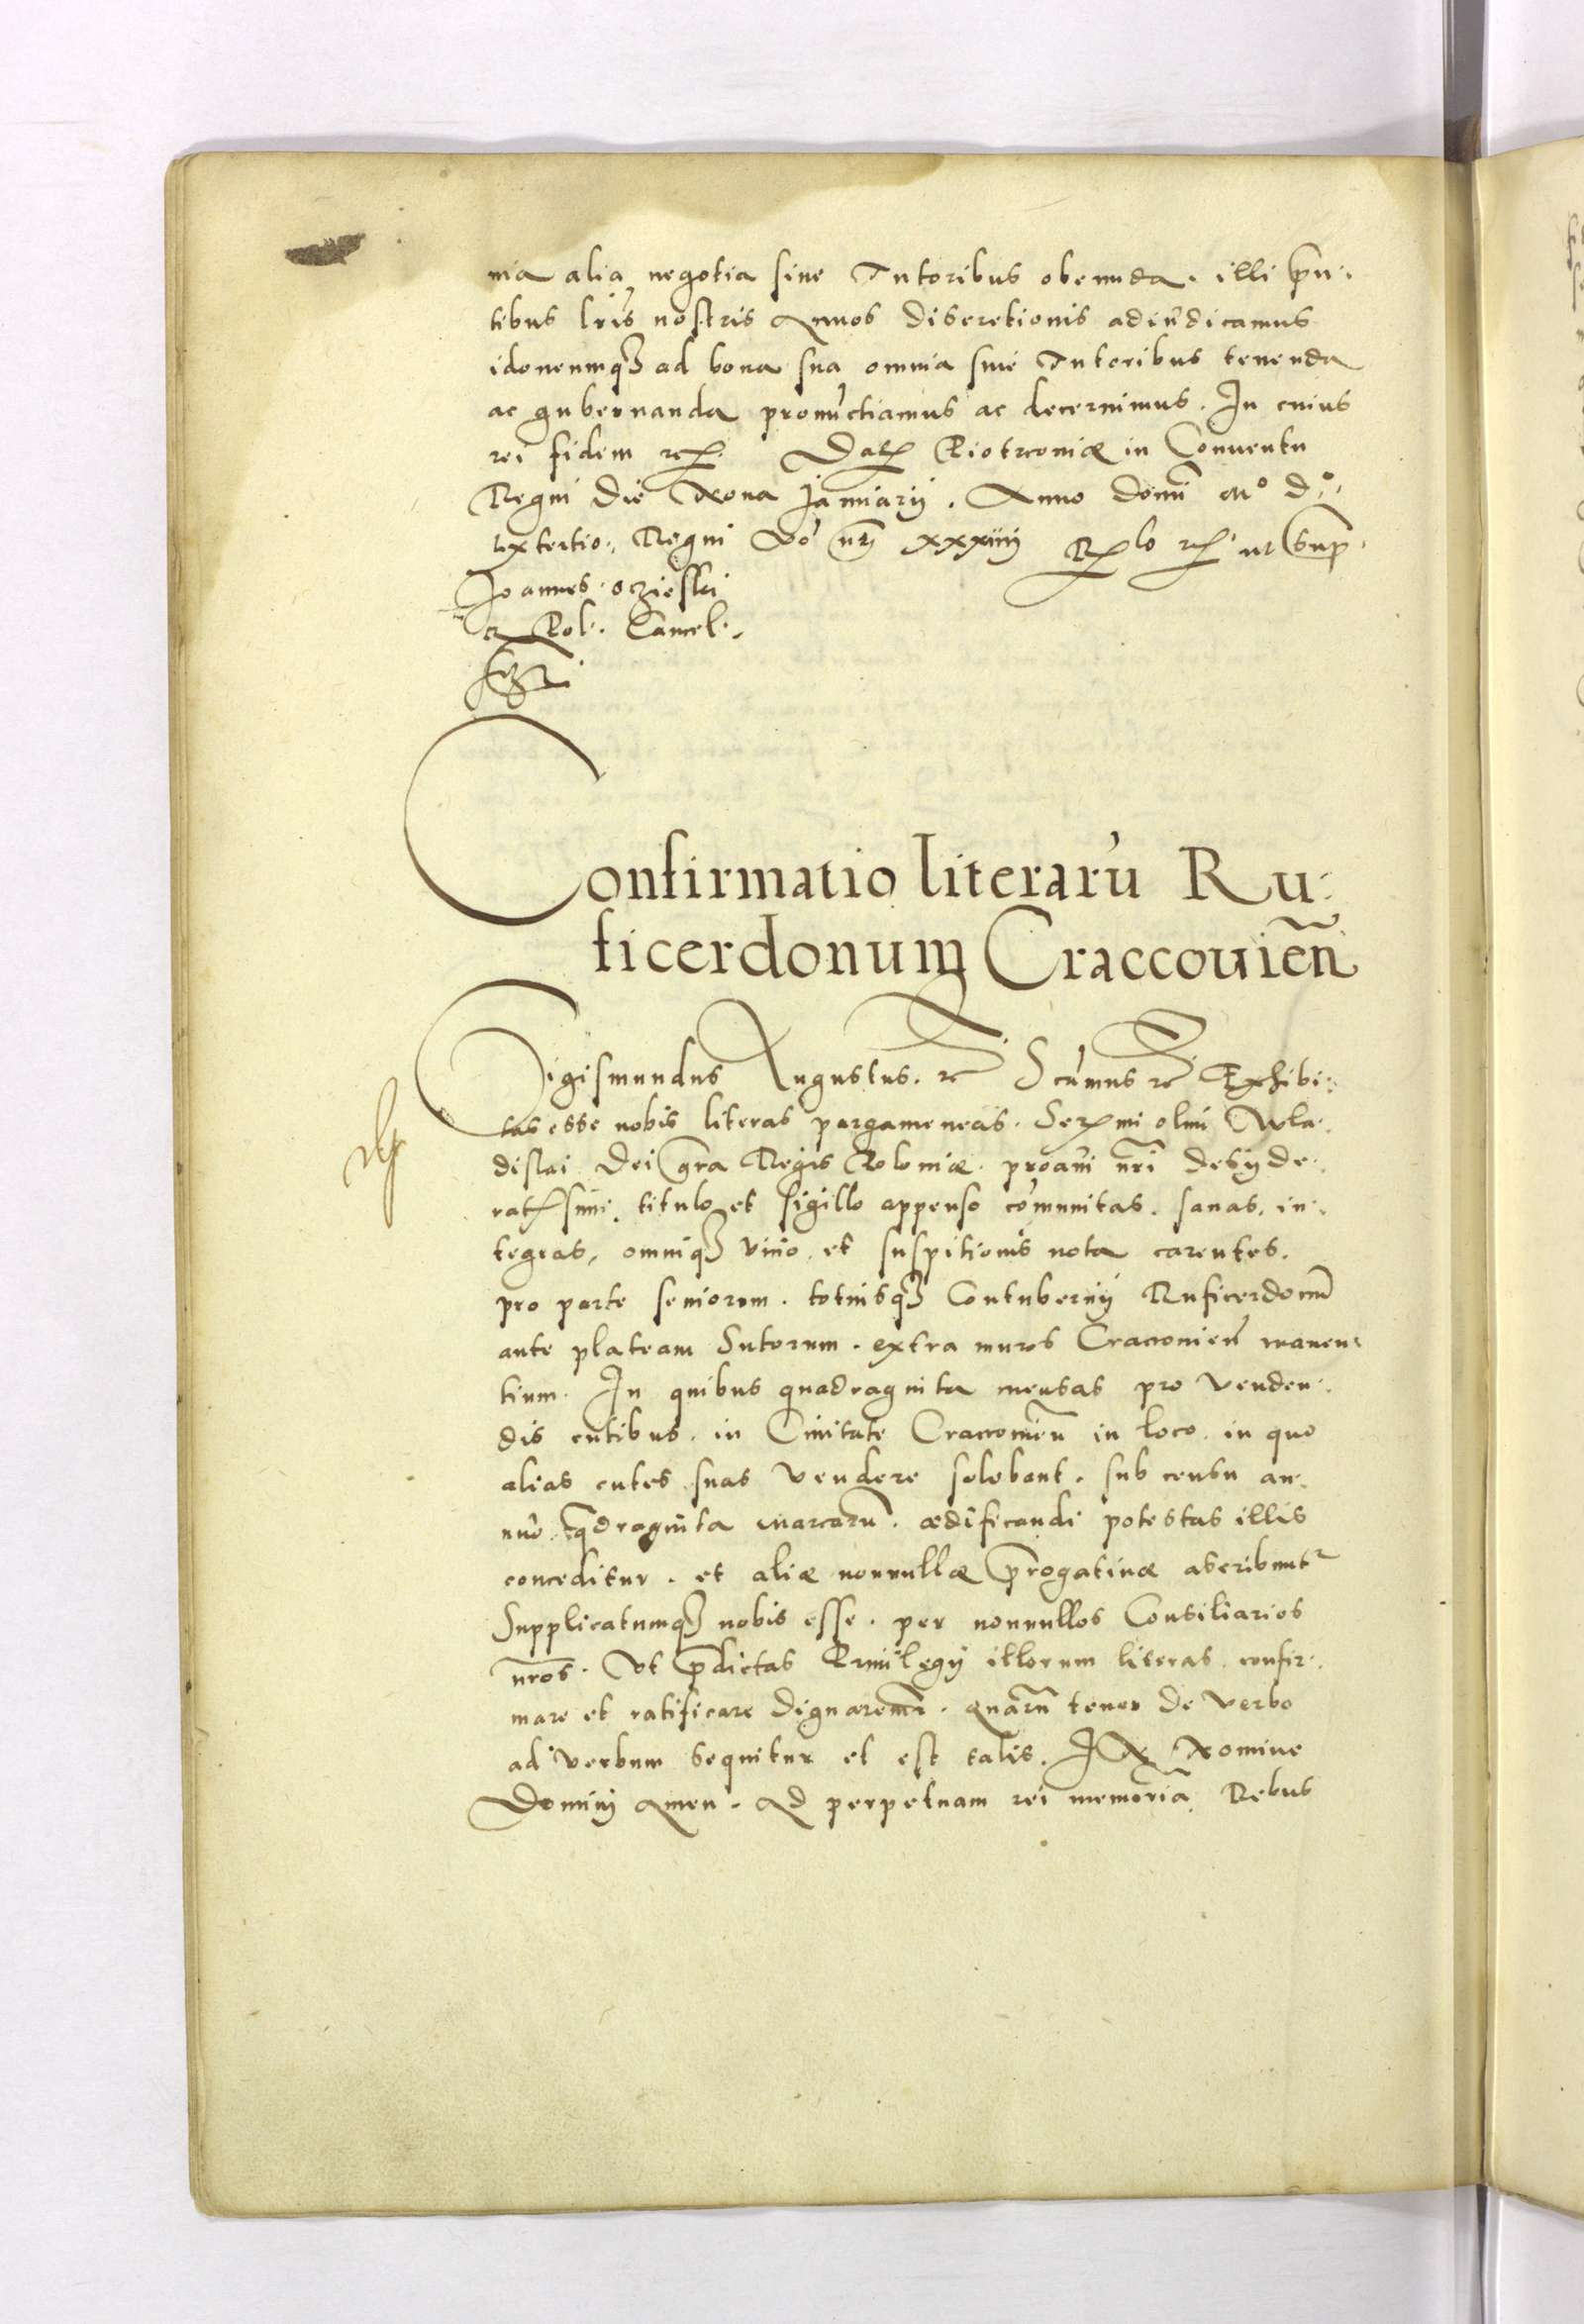 nia alia negotia sine Tutoribus obeunda. illi pñ:
tibus lr̃is nostris Annos discretionis adiudicamus
idoneumq3 ad bona sua omnia sine Tutoribus tenenda
ac gubernanda pronũctiamus ac decernimus. In cuius
rei fidem rc̃. Datũ Piotrconiæ in Conuentu
Regni die Nona Januarij. Anno domi Mº dº
lxtertio, Regni vo nri xxxiiij ut sup
Joannes Oczieski
R Pol. Cancel.
Confirmatio literarũ Ru:
ficerdonum Craccouień
Sigismundus Augustus. rc Scimus rc Exhibi:
tas esse nobis literas pargameneas. Sermi olim Wla:
dislai Dei gra Regis Poloniæ. proaui nri desyde:
ratissimi. titulo et sigillo appenso cõmunitas. sanas, in:
tegras, omniq3 vitio et suspitionis nota carentes.
pro parte seniorum. totiusq3 Contubernij Ruficerdonũ
ante plateam Sutorum. extra muros Craccouień manen:
tium. In quibus quadraginta mensas pro venden:
dis cutibus. in Ciuitate Craccouień in loco. in quo
alias cutes suas vendere solebant. sub censu an:
nuo qdraginta marcarũ. ædificandi potestas illis
conceditur. et aliæ nonnullæ p̃rogatiuæ ascribunt2
Supplicatumq3 nobis esse. per nonnullos Consiliarios
nros. Vt p̃dictas Priuilegij illorum literas confir:
mare et ratificare dignaremr. quarũ tenor de verbo
ad verbum sequitur et est talis. IN Nomine
Domini Amen. Ad perpetuam rei memoriã Rebus